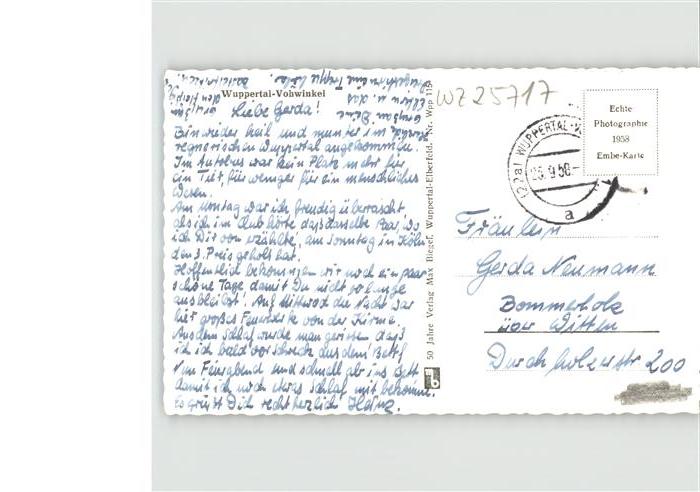 Wuppertal-Vohwinkel
Liebe Gerda!
Bin wieder heil und munter im
regnerischen Wuppertal angekommen.
Im Autobus war kein Platz mehr für
ein Tier, für weniger für ein menschliches
Wesen.
Am Montag war ich freudig überrascht,
als ich im Club hörte das dasselbe Paar, wo
ich Dir von erzählte, am Sonntag in Köln
den 3. Preis geholt hat.
Hoffentlich bekommen wir noch ein paar
schöne Tage damit Du nicht so lange
ausbleibst. Auf Mittwoch die Nacht war
hier großes Feuerwerk von der Kirmes.
Aus dem Schlaf wurde man gerissen daß
ich bald vor Schreck aus dem Bett
Nun Feierabend und schnell ab ins Bett
damit ich noch etwas Schlaf mit bekomme.
Es grüßt Dich recht herzlich Heinz.
50 Jahre Verlag Max Biegel, Wuppertal-Elberfeld, Nr. Wpp 115
WZ 25717
(22a) WUPPERTAL-
a
Echte
Photographie
1958
Embe-Karte
Fräulein
Gerda Neumann
Bommerholz
über Witten
Durchholzerstr 200